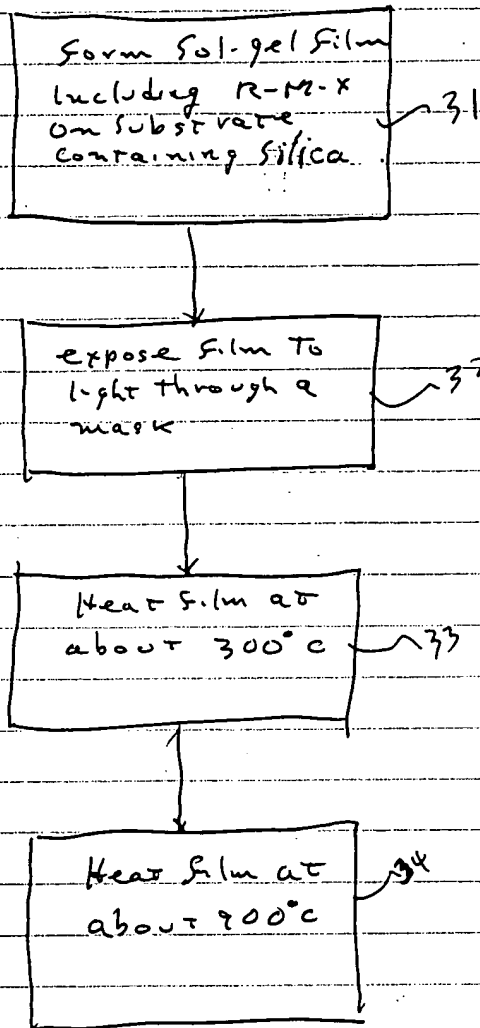 Form Sol-gel Film
Including R-M-X
on Substrate
containing Silica
31
expose Film To
light through a
mask
Heat Film at
about 300°C
33
Heat Film at
about 900°C
34